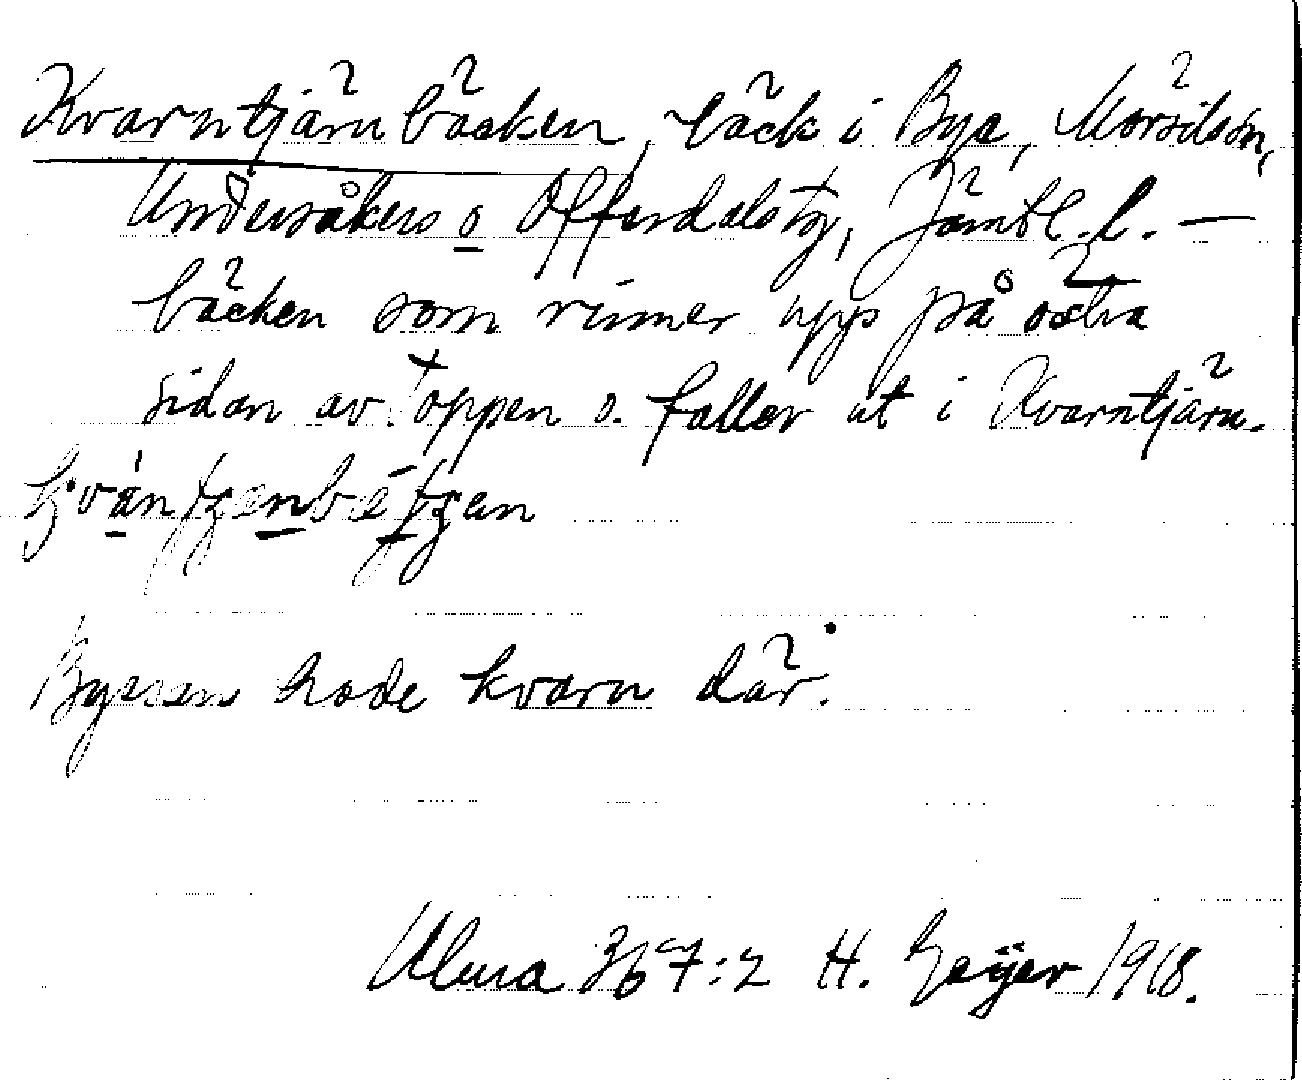 Kvarntjärnbäcken, bäck i Bye, Mörsils sn,
Undersåkers o Offerdals tg, Jämtl. l. —
bäcken som rinner upp på östra
sidan av toppen o. faller ut i Kvarntjärn.
Byssen hade kvarn där.
Ulma 367:2 H. Geijer 1918.